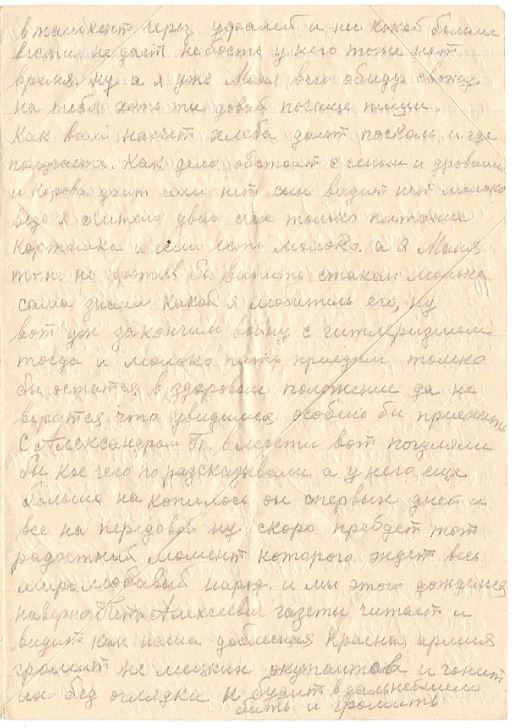 в ташкент через и ни какой больше
вести не дает наверость у него тоже нет
время. ну а я уже Маня всю обиду свожу
на тебя хоть ты давай почаще пиши.
Как вам насчет хлеба дают посколь и где
получаете. Как дело обстоит с сеном и дровами
и корова доит или нет сын видит нет молока
ведь я считаю у вас еще только питание
картошка и если есть молоко. а я Маня
тоже не против бы выпить стакан молока
сама знаеш какой я любитель его, ну
вот уж закончим войну с гитлеризмом
тогда и молоко пить приедим только
бы остатся в здоровом положение да не
верится что увидимся особено бы приехать
С Александром П. вмести вот погуляли
бы кое чего по разсказывали а у него еще
больше на копилось он спервых дней и
все на передовой ну скоро прейдет тот
радостный момент которого ждет весь
миролюбивый народ. и мы этого дождемся
наверно Петр Алексеевич газеты читает и
видит как наша доблесная Красна армия
громит не мецких окупантов и гонит
их без оглядки и будит в дальнейшем
бить и громить